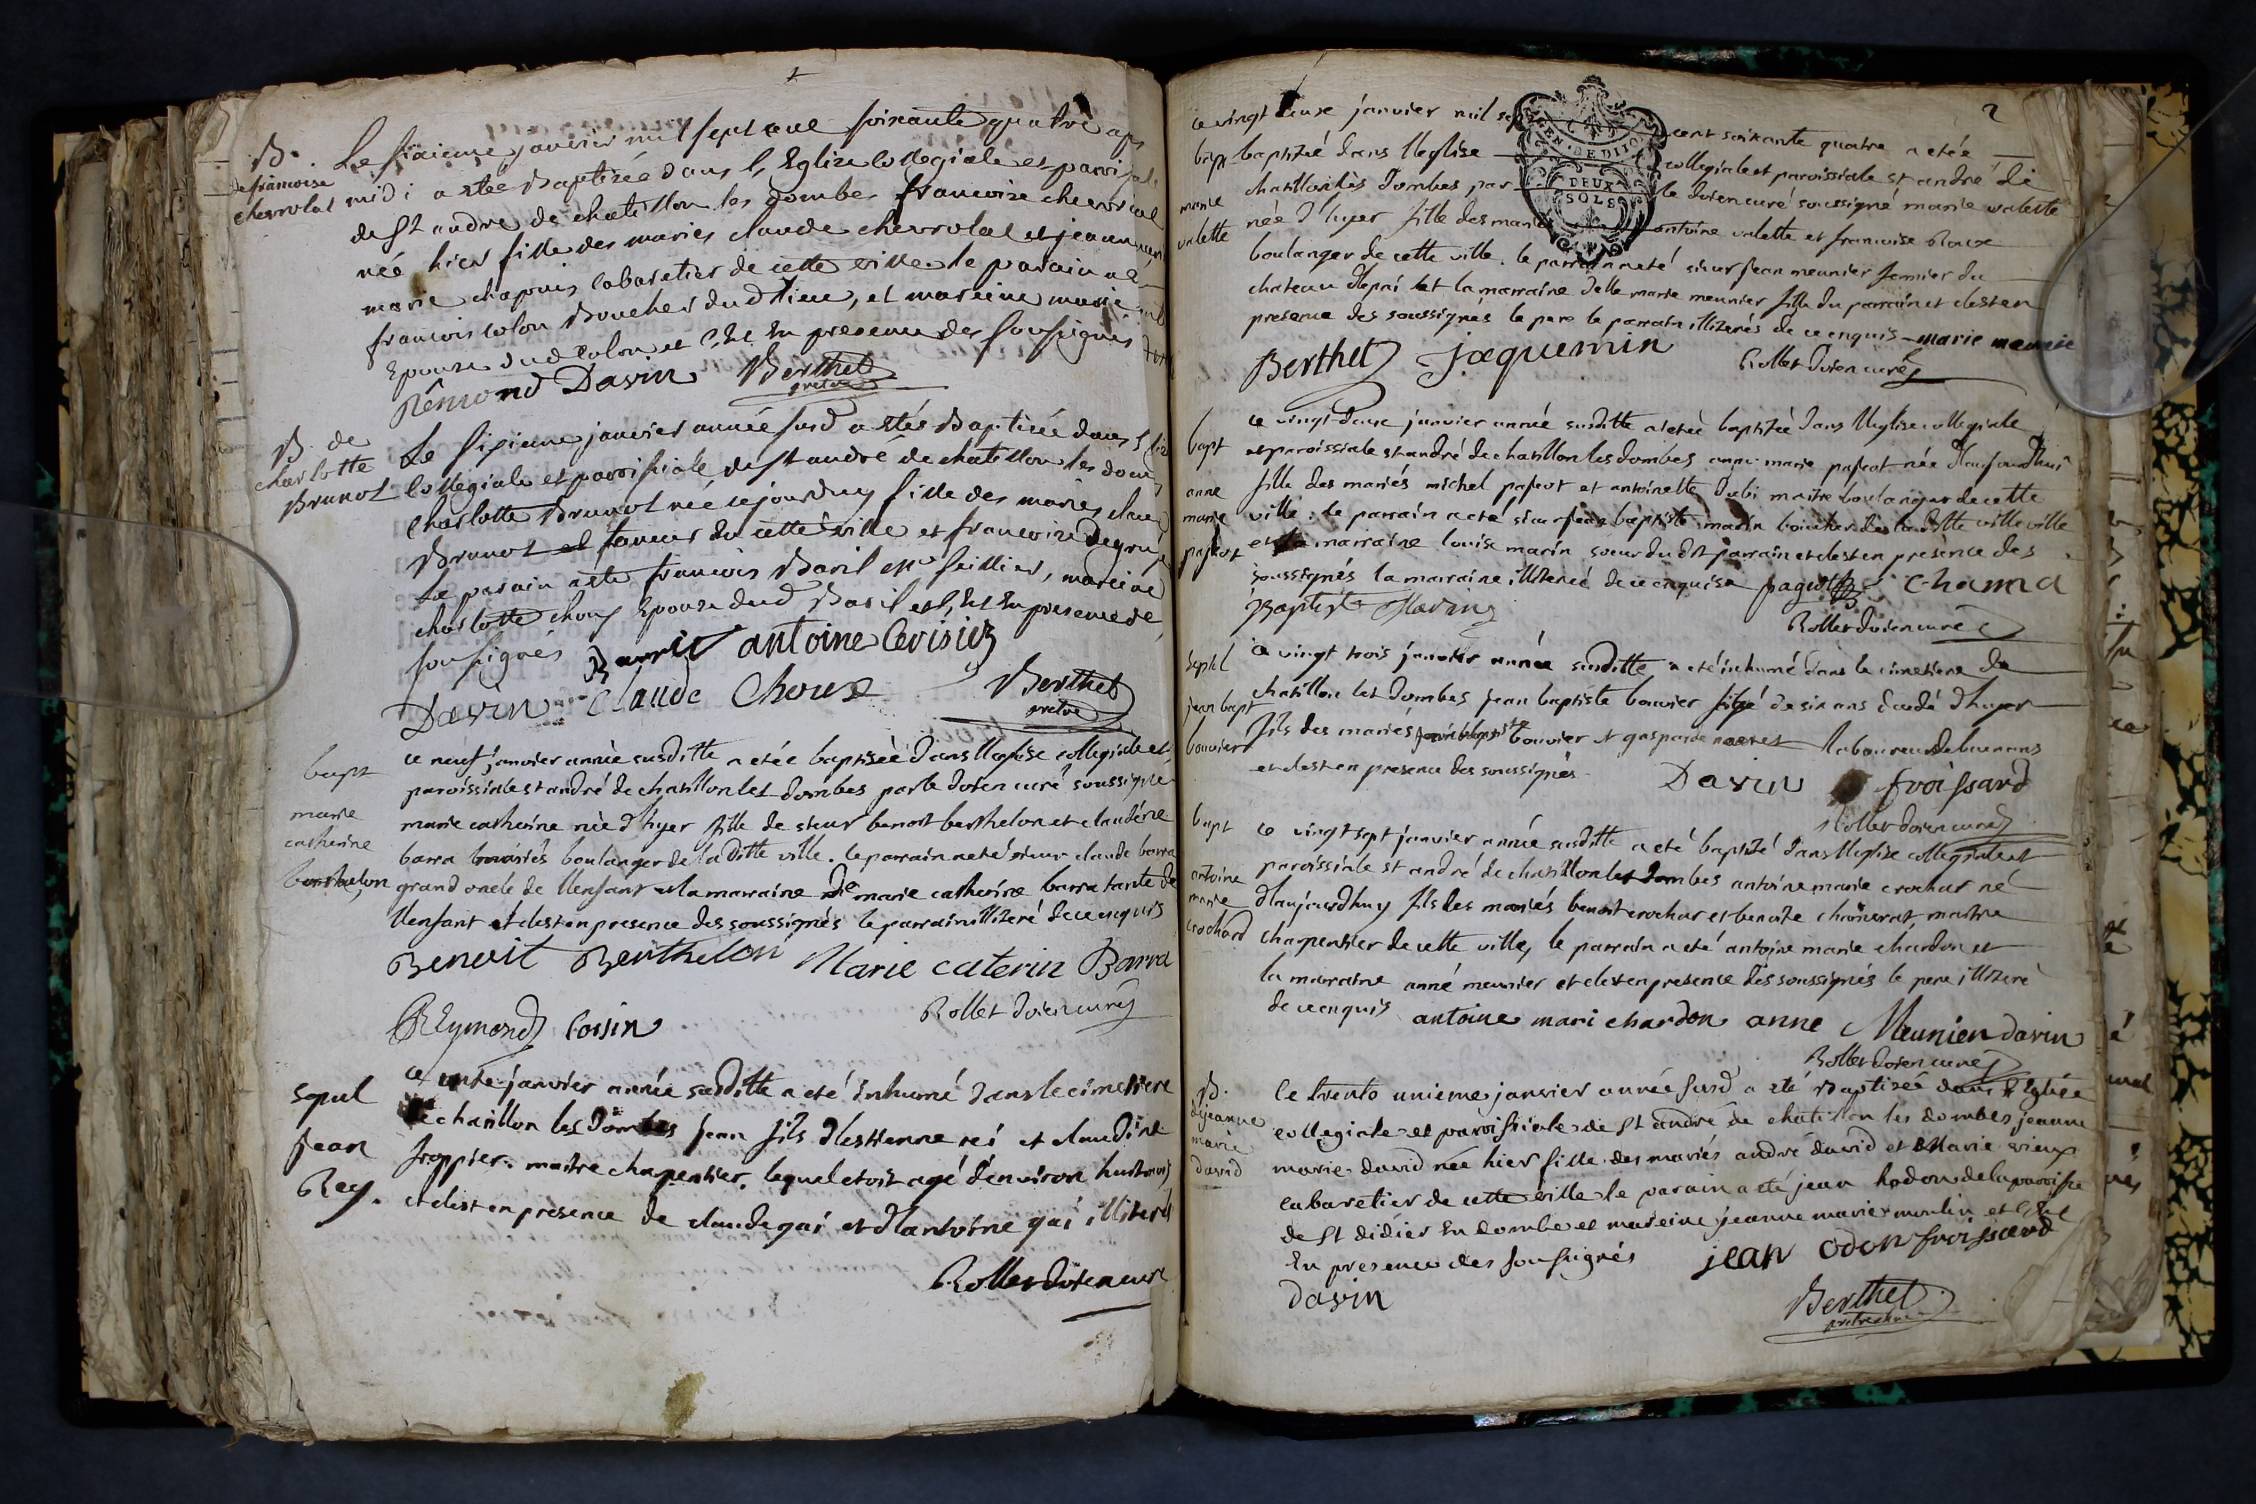 B.
de francoise
chevrolat
Le sixieme janvier mil sept cent soixante quatre apres
midi a ete Baptizée dans l'Eglize Collegiale et paroissiale
de St andré de chatillon les dombes francoise chevrolat
née hier fille des mariés claude chevrolat et jeanne
marie chapuis cabaretier de cette ville le parain a été
francois colon Boucher dud lieu, et mareine marie
Epouze dud colon et c'Est En presence des sousignés
Rémond Davin Berthet
pretre
B. de
charlotte
Brunot
Le sixieme janvier année susd a etée Baptizée dans l'Eglize
Collegiale et paroissiale de St andré de chatillon les dombes
charlotte Brunot née cejourduy fille des mariés claude
Brunot et faneur de cette ville et francoize
Le parain a ete francois Baril sellier, mareine
charlotte choux Epouze dud Baril et c'Est En presence des
sousignés Barril antoine Cevisiez
Davin Claude Choux Berthet
pretre
bapt
marie
catherine
berthelon
ce neuf janvier année susditte a etée baptisée dans l'leglise collegiale et
paroissiale st andré de chatillon les dombes par le doien curé soussigné
marie catherine née d'hyer fille de sieur benoit berthelon et claudine
barra mariés boulanger de laditte ville. le parrain a eté sieur claude barra
grand oncle de l'lenfant et la marraine de marie catherine barra tante de
l'lenfant et c'est en presence des soussignés le parrain illiteré de ce enquis
Benoit Berthelon Marie caterin Barra
REymond Cossin Rollet doien curé
sepul
jean
Rey.
ce onze janvier année susditte a eté inhumé dans le cimetiere
de chatillon les dombes jean fils d'lestienne rei et claudine
froppier. maitre charpentier. lequel etoit agé d'environ huit mois
et c'est en présence de claude gai et d'lantoine gai illiterés
Rollet doien curé
2
GEN. DE DIJON
DEUX
SOLS
bapt
marie
valette
ce vingt deux janvier mil sept cent soixante quatre a etée
baptizée dans l'leglise collegiale et paroissiale st andré de
chatillon les dombes par le doien curé soussigné marie valette
née d'hyer fille des mariés antoine valette et francoise Roux
boulanger de cette ville. le parrain a eté sieur jean meunier fermier du
chateau d'lepai et la marraine delle marie meunier fille du parrain et c'est en
presence des soussignés le pere le parrain illiterés de ce enquis marie meunie
Berthet jaquemin Rollet doien curé
bapt
anne
marie
pajeot
ce vingt-deux janvier année susditte a eteé baptizée dans l'leglise collegiale
et paroissiale st andré de chatillon les dombes anne marie pajeot née d'laujourdhui
fille des mariés michel pajeot et antoinette dubi maitre boulanger de cette
ville. le parrain a eté sieur jean baptiste marin boucher de laditte ville ville
et la marraine louise marin soeur dudit parrain et c'est en presence des
soussignés la marraine illiterée de ce enquise pageot chama
Baptiste Marin
Rollet doien curé
sepul
jean bapt
bouvier
ce vingt trois janvier année susditte a eté inhumé dans le cimetiere de
chatillon les dombes jean baptiste bouvier agé de six ans decedé d'hyer
fils des mariés jean baptiste bouvier et gasparde laboureur de
et c'est en presence des soussignés. Davin froissard
Rollet doien curé
bapt
antoine
marie
crochard
ce vingt sept janvier année susditte a eté baptizé dans l'leglise collegiale et
paroissiale st andré de chatillon les dombes antoine marie crochar né
d'laujourdhuy fils des mariés benoit crochar et benoite maitre
charpentier de cette ville, le parrain a eté antoine marie chardon et
la marraine anne meunier et c'est en presence des soussignés le pere illiteré
de ce enquis antoine mari chardon anne Meunier davin
Rollet doien curé
B.
de jeanne
marie
david
Le trente unieme janvier année susd a eté Baptizée dans l'Eglize
collegiale et paroissiale de St andré de chatillon les dombes jeanne
marie david née hier fille des mariés andré david et Marie vieux
cabaretier de cette ville le parain a eté jean hodon de la paroisse
de St didier En dombe et mareine jeanne marie moulin et c'Est
En presence des sousignés jean odon froissard
davin Berthet